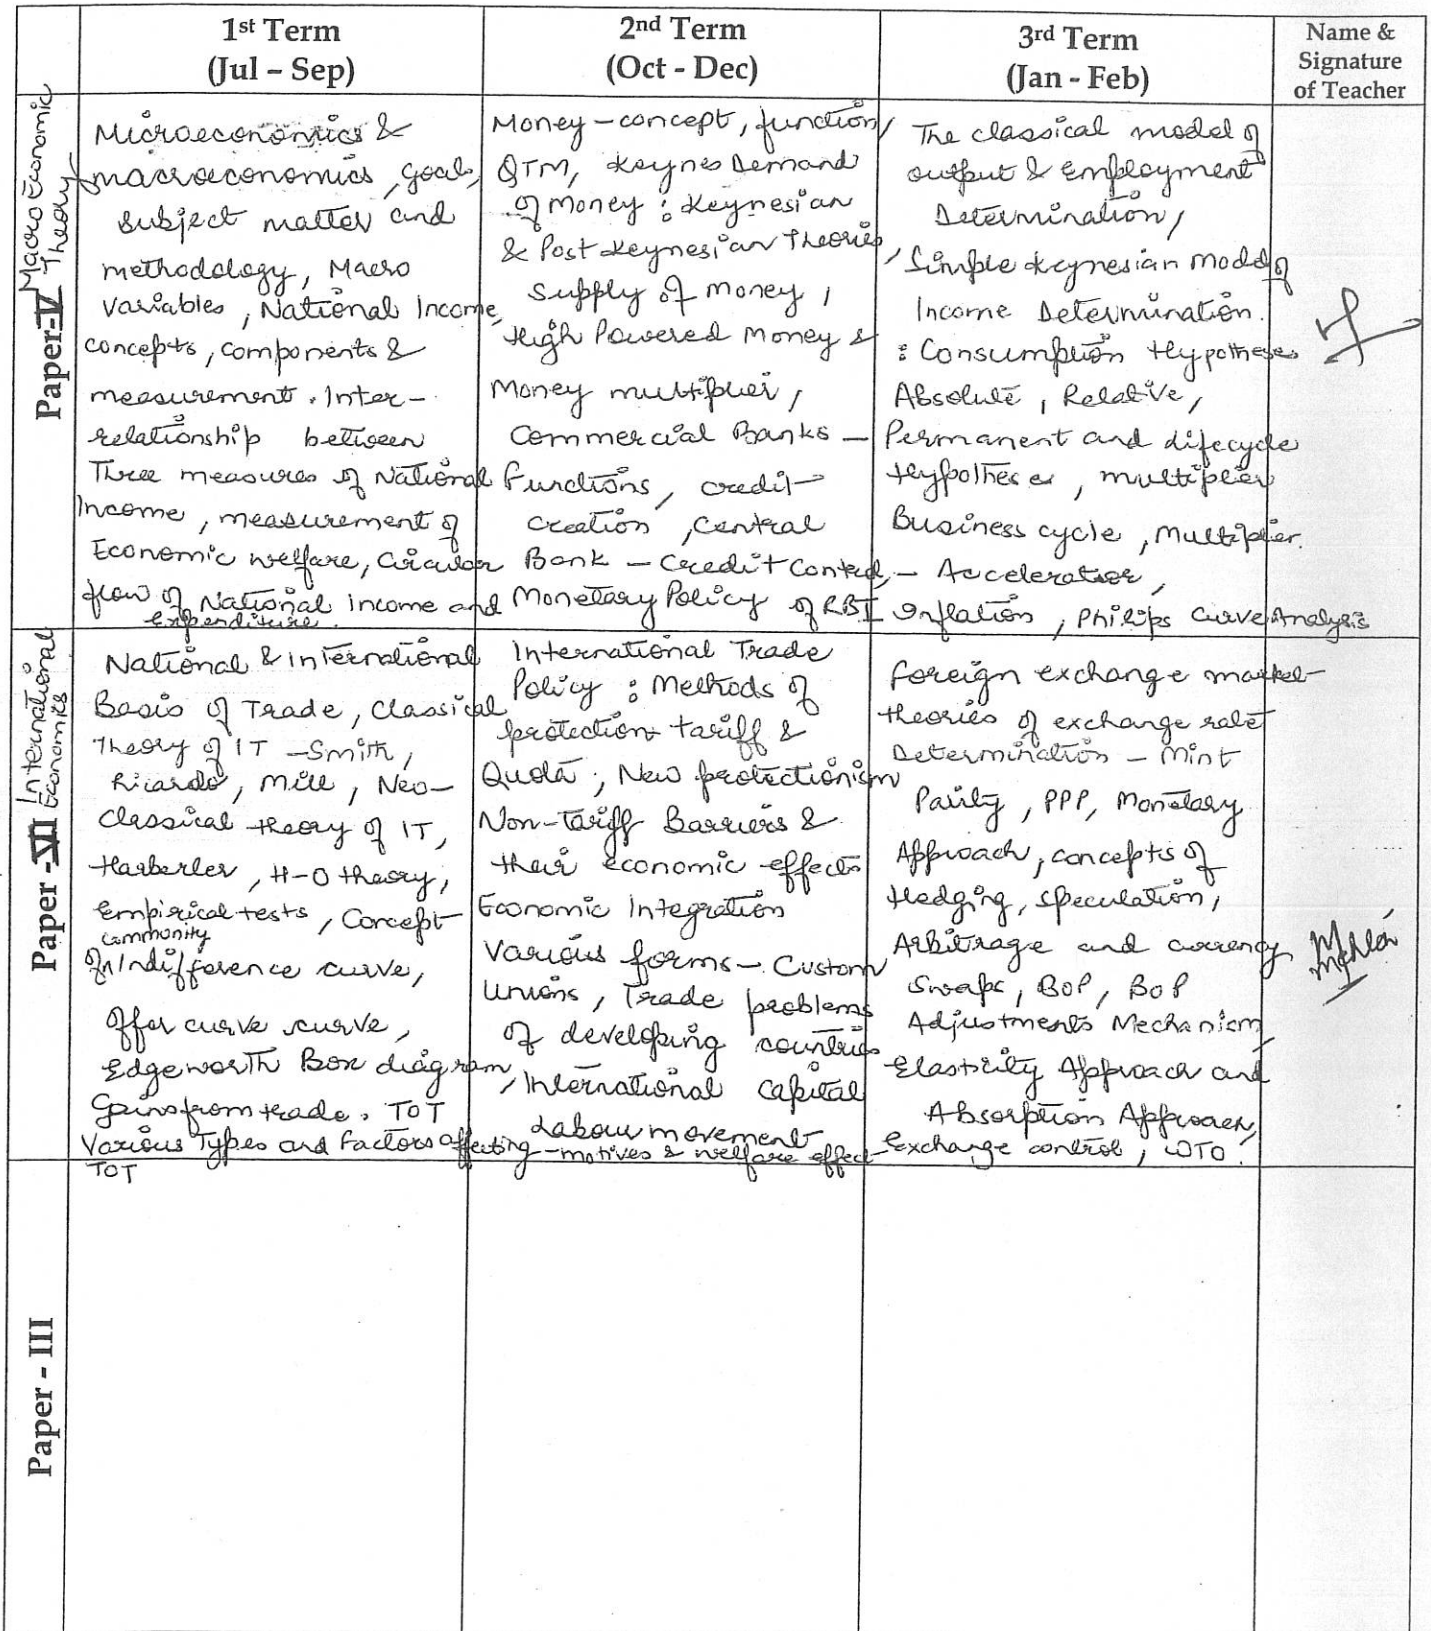 1st Term
(Jul – Sep)
2nd Term
(Oct - Dec)
3rd Term
(Jan - Feb)
Name &
Signature
of Teacher
Paper-V
Macro Economic
Theory
Microeconomics &
macroeconomics, goals,
subject matter and
methodology, Macro
Variables, National Income,
concepts, components &
measurement. Inter-
relationship between
Three measures of National
Income, measurement of
Economic welfare, Circular
flow of National Income and
expenditure.
Money – concept, function,
QTM, Keynes Demand
of Money : Keynesian
& Post Keynesian Theories,
Supply of money,
High Powered Money &
Money multiplier,
Commercial Banks –
Functions, credit
creation, central
Bank – Credit Control,
Monetary Policy of RBI
The classical model of
output & Employment
Determination,
Simple Keynesian model of
Income Determination.
: Consumption Hypotheses
Absolute, Relative,
Permanent and lifecycle
Hypotheses, multiplier
Business cycle, Multiplier.
– Accelerator,
Inflation, Philips Curve Analysis
Paper - VII
International
Economics
National & international
Basis of Trade, Classical
Theory of IT – Smith,
Ricardo, Mill, Neo-
Classical theory of IT,
Harberler, H-O theory,
Empirical tests, Concept
community
of Indifference curve,
Offer curve curve,
Edgeworth Box diagram,
Gains from trade. TOT
Various Types and Factors affecting
TOT
International Trade
Policy : Methods of
protection tariff &
Quota; New protectionism
Non-Tariff Barriers &
their economic effects
Economic Integration
Various forms – Custom
Unions, Trade problems
of developing countries
, International capital
Labour movement
– motives & welfare effect
Foreign exchange market
theories of exchange rate
Determination – Mint
Parity, PPP, Monetary
Approach, concepts of
Hedging, speculation,
Arbitrage and currency
Swaps, BOP, BOP
Adjustments Mechanism,
Elasticity Approach and
Absorption Approach,
Exchange control, WTO.
Paper - III